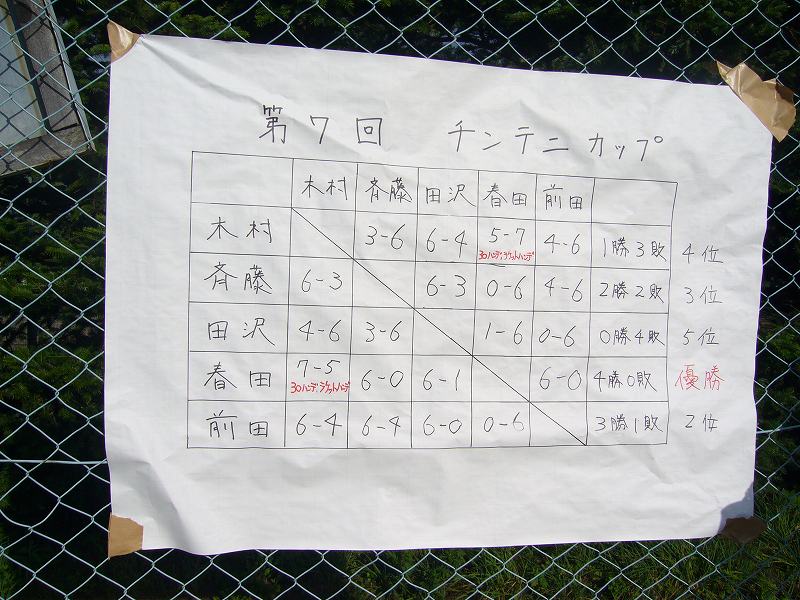 第7回 チンテニカップ
木村 斉藤 田沢 春田 前田
木村 3-6 6-4 5-7 4-6 1勝3敗 4位
30ハンデ、ラケットハンデ
斉藤 6-3 6-3 0-6 4-6 2勝2敗 3位
田沢 4-6 3-6 1-6 0-6 0勝4敗 5位
春田 7-5 6-0 6-1 6-0 4勝0敗 優勝
30ハンデ、ラケットハンデ
前田 6-4 6-4 6-0 0-6 3勝1敗 2位